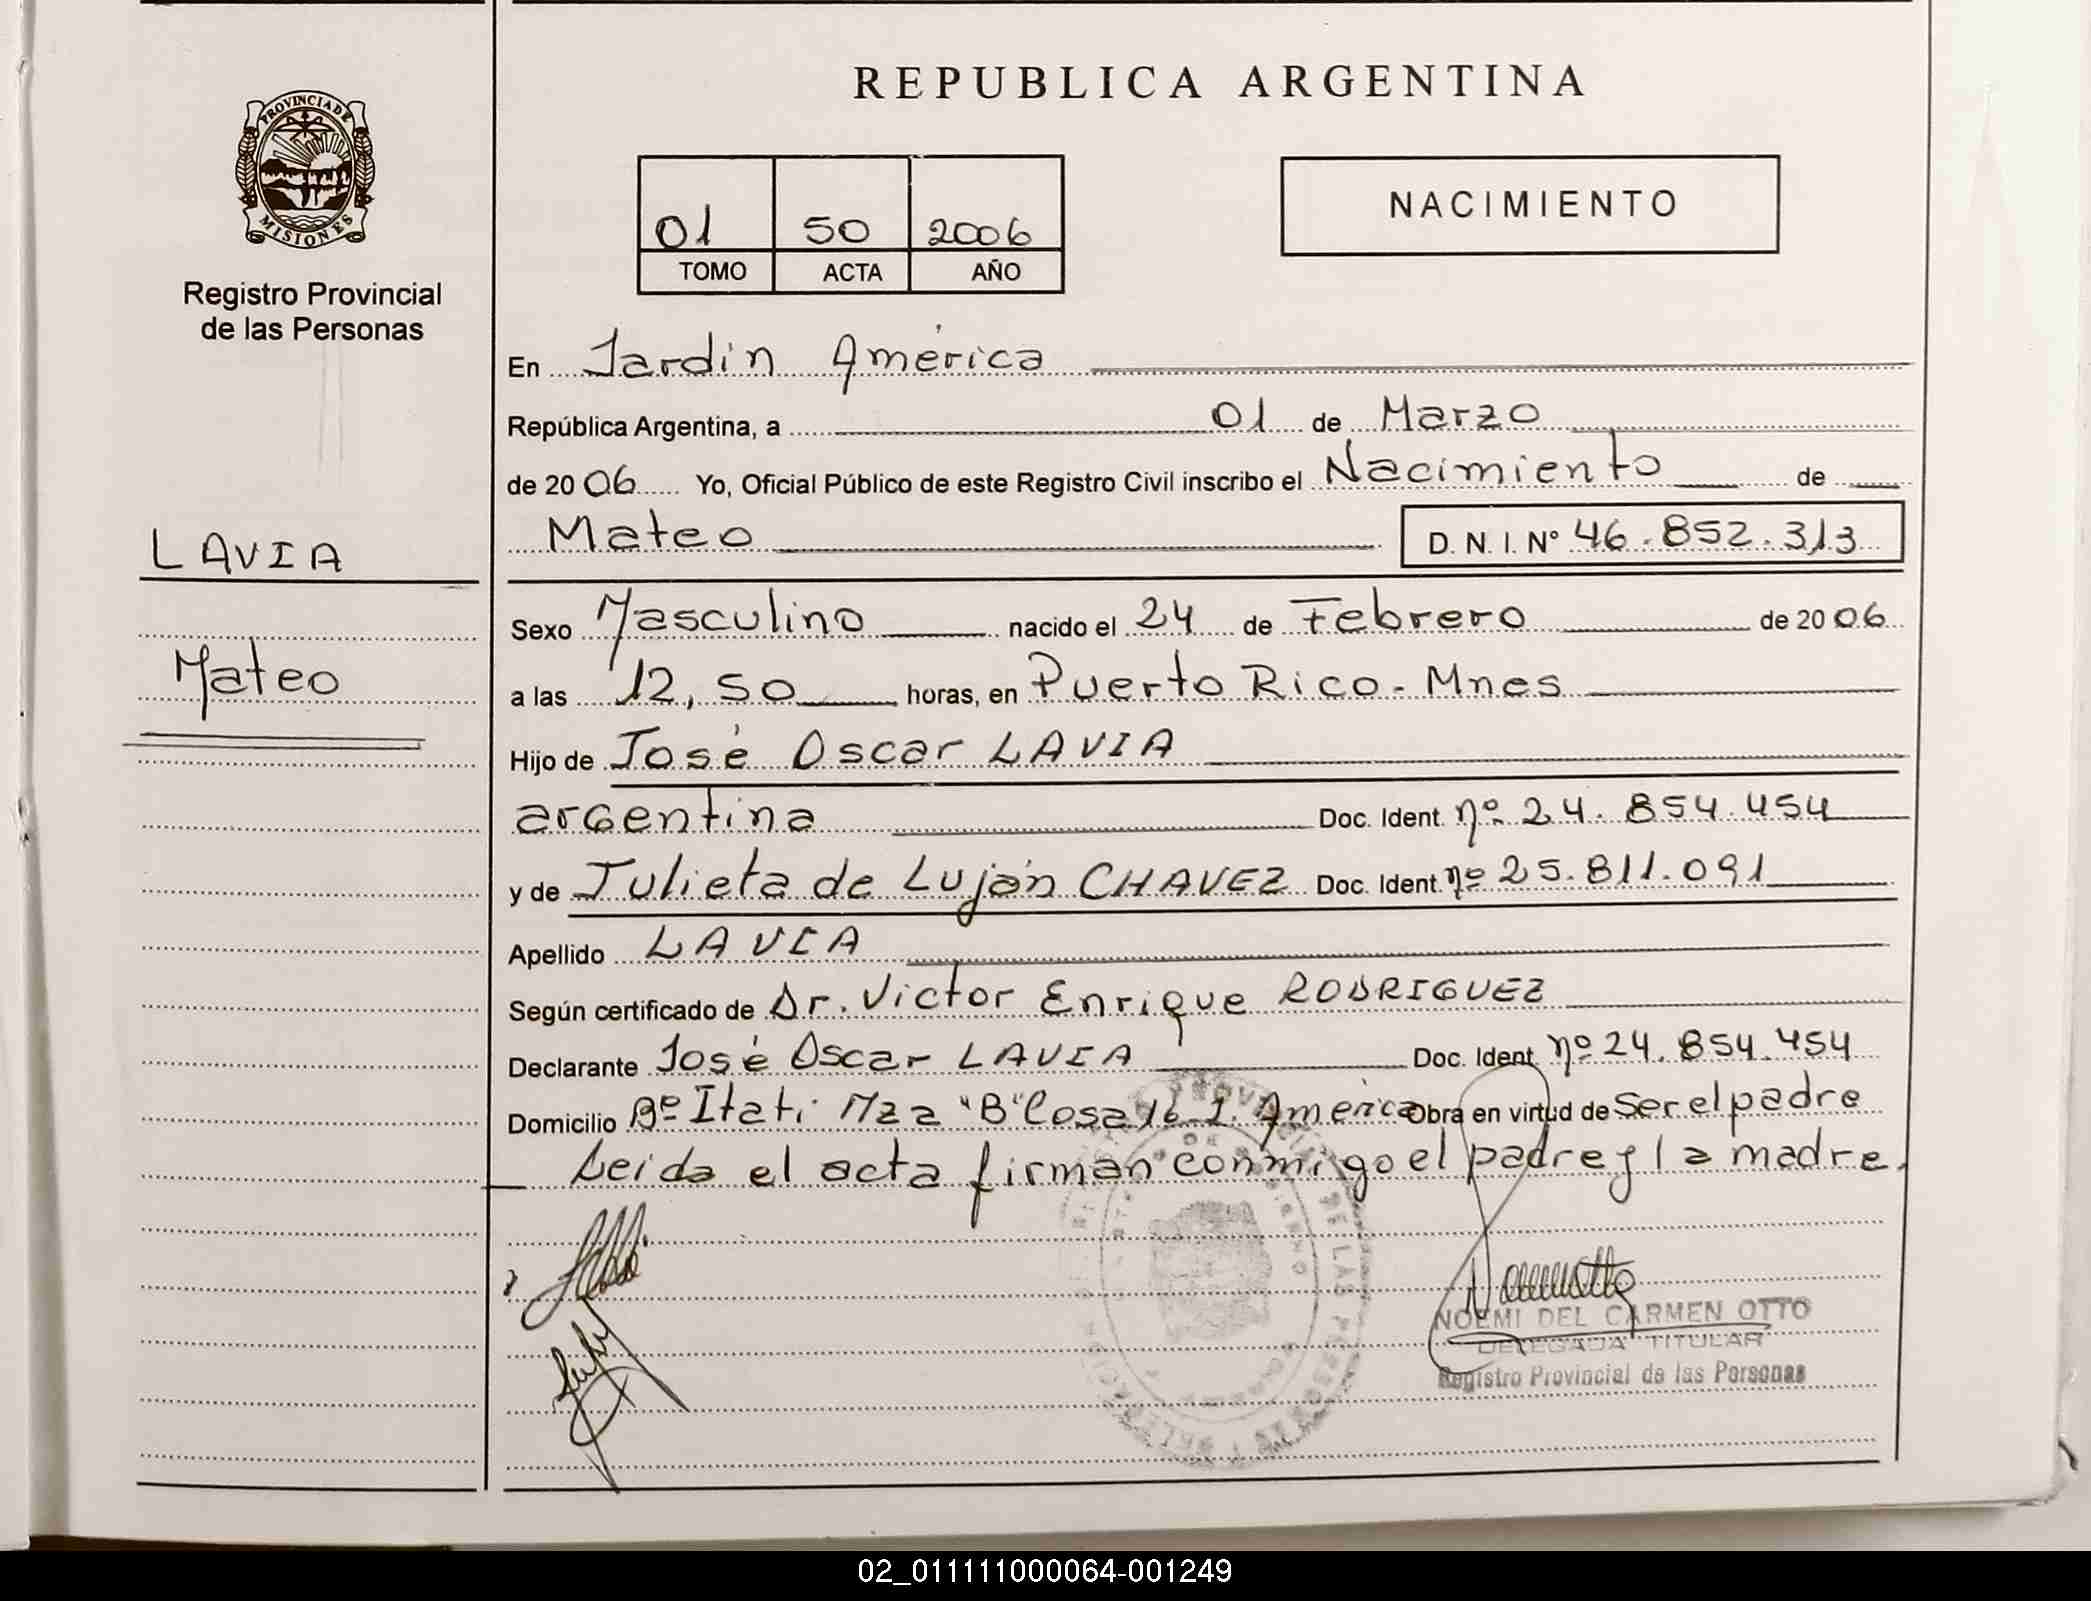 REPUBLICA ARGENTINA
PROVINCIA DE
MISIONES
Registro Provincial
de las Personas
01 50 2006
TOMO ACTA AÑO
NACIMIENTO
En Jardín América
República Argentina, a 01 de Marzo
de 2006 Yo, Oficial Público de este Registro Civil inscribo el Nacimiento de
Mateo D. N. I. Nº 46.852.313
LAVIA
Mateo
Sexo Masculino nacido el 24 de Febrero de 2006
a las 12,50 horas, en Puerto Rico - Mnes
Hijo de José Oscar LAVIA
argentina Doc. Ident. nº 24.854.454
y de Julieta de Luján CHAVEZ Doc. Ident. nº 25.811.091
Apellido LAVIA
Según certificado de Dr. Victor Enrique RODRIGUEZ
Declarante José Oscar LAVIA Doc. Ident. nº 24.854.454
Domicilio Bº Itati Mza "B" Casa 16 J. América Obra en virtud de ser el padre
Leida el acta firman conmigo el padre y la madre.
NOEMI DEL CARMEN OTTO
DELEGADA TITULAR
Registro Provincial de las Personas
02_011111000064-001249